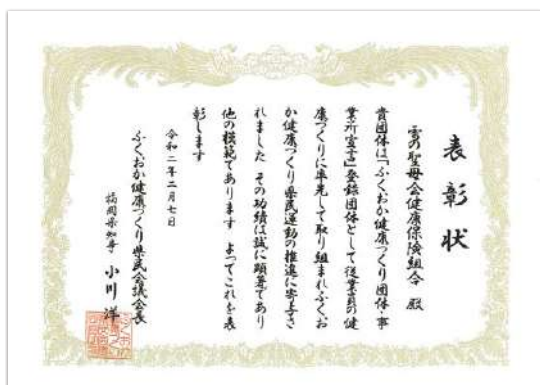 表彰状
雪の聖母会健康保険組合 殿
貴団体は「ふくおか健康づくり団体・事
業所宣言」登録団体として従業員の健
康づくりに率先して取り組まれふくお
か健康づくり県民運動の推進に寄与さ
れました その功績は誠に顕著であり
他の模範であります よってこれを表
彰します
令和二年二月七日
ふくおか健康づくり県民会議会長
福岡県知事 小川 洋